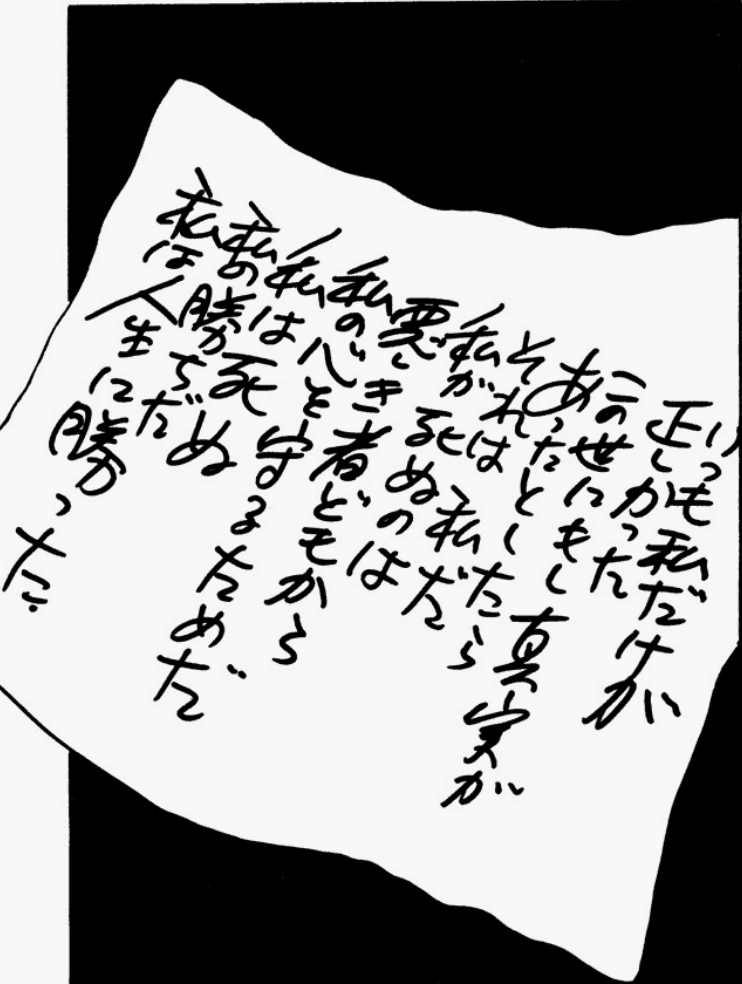 いつも私だけが
正しかった
この世にもし真実が
あったとしたら
それは私だ
私が死ぬのは
悪しき者どもから
私の心を守るためだ
私は死ぬ
私の勝ちだ
私は人生に勝った.